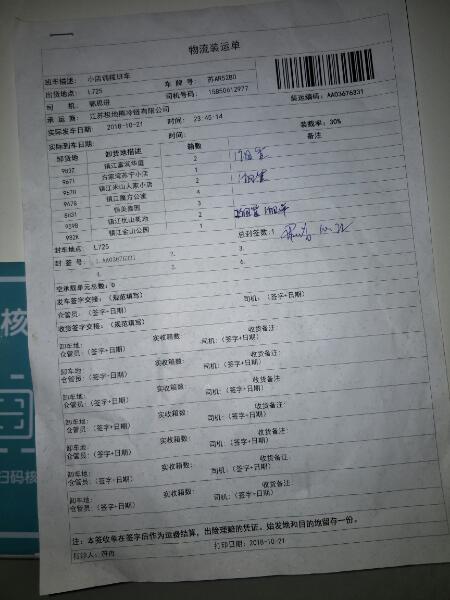 物流装运单
班车描述： 小店钨碳班车
出货地点： L725 车 牌 号： 苏AR52B0
司 机： 郭思进 司机号码： 15850612977
承 运 商： 江苏极地熊冷链有限公司 装运编码：AA03676331
实际发车日期： 2018-10-21 时间： 23:45:14
实际到车日期： 时间： 装载率：30%
卸货地 卸货地描述 箱数 备注
镇江富民华庭 2
9671 2
9570 镇江米山人家小店 1
9678 镇江魔方公寓 4
恒美嘉园 3
镇江桃山苑地 2
982K 镇江金山公园 1
封车地点： L725 总封签数：1
封 签 号： 1.AA03676331 2. 3.
4. 5. 6.
空承载单元总数：0
发车签字交接：（规范填写）
仓管员：（签字+日期） 司机：（签字+日期）
收货签字交接：（规范填写）
卸车地： 实收箱数： 收货备注：
仓管员：（签字+日期） 司机：（签字+日期）
卸车地： 实收箱数： 收货备注：
仓管员：（签字+日期） 司机：（签字+日期）
卸车地： 实收箱数： 收货备注：
仓管员：（签字+日期） 司机：（签字+日期）
卸车地： 实收箱数： 收货备注：
仓管员：（签字+日期） 司机：（签字+日期）
卸车地： 实收箱数： 收货备注：
仓管员：（签字+日期） 司机：（签字+日期）
卸车地： 实收箱数： 收货备注：
仓管员：（签字+日期） 司机：（签字+日期）
卸车地： 实收箱数： 收货备注：
仓管员：（签字+日期） 司机：（签字+日期）
注：本签收单在签字后作为运费结算，出险理赔的凭证，始发地和目的地留存一份。
打印日期：2018-10-21
核
扫码核